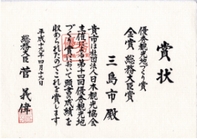 賞状
優秀観光地づくり賞
金賞 総務大臣賞
三島市殿
貴市は社団法人日本観光協会
主催第十四回優秀観光地
づくり賞において頭書の成績を
収められたのでこれを賞します
平成十九年四月十九日
総務大臣 菅義偉